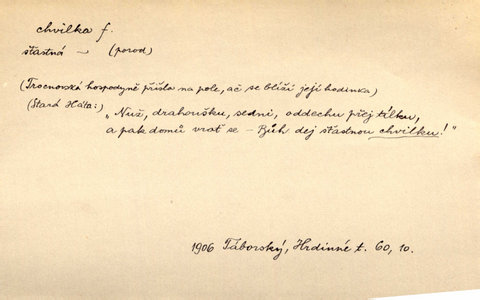 chvilka f.
šťastná ~ (porod)
(Trocnovská hospodyně přišla na pole, ač se blíží její hodinka)
(Stará Háta:) „Nuž, drahoušku, sedni, oddechu přej tílku,
a pak domů vrať se – Bůh dej šťastnou chvilku!"
1906 Táborský, Hrdinné t. 60, 10.